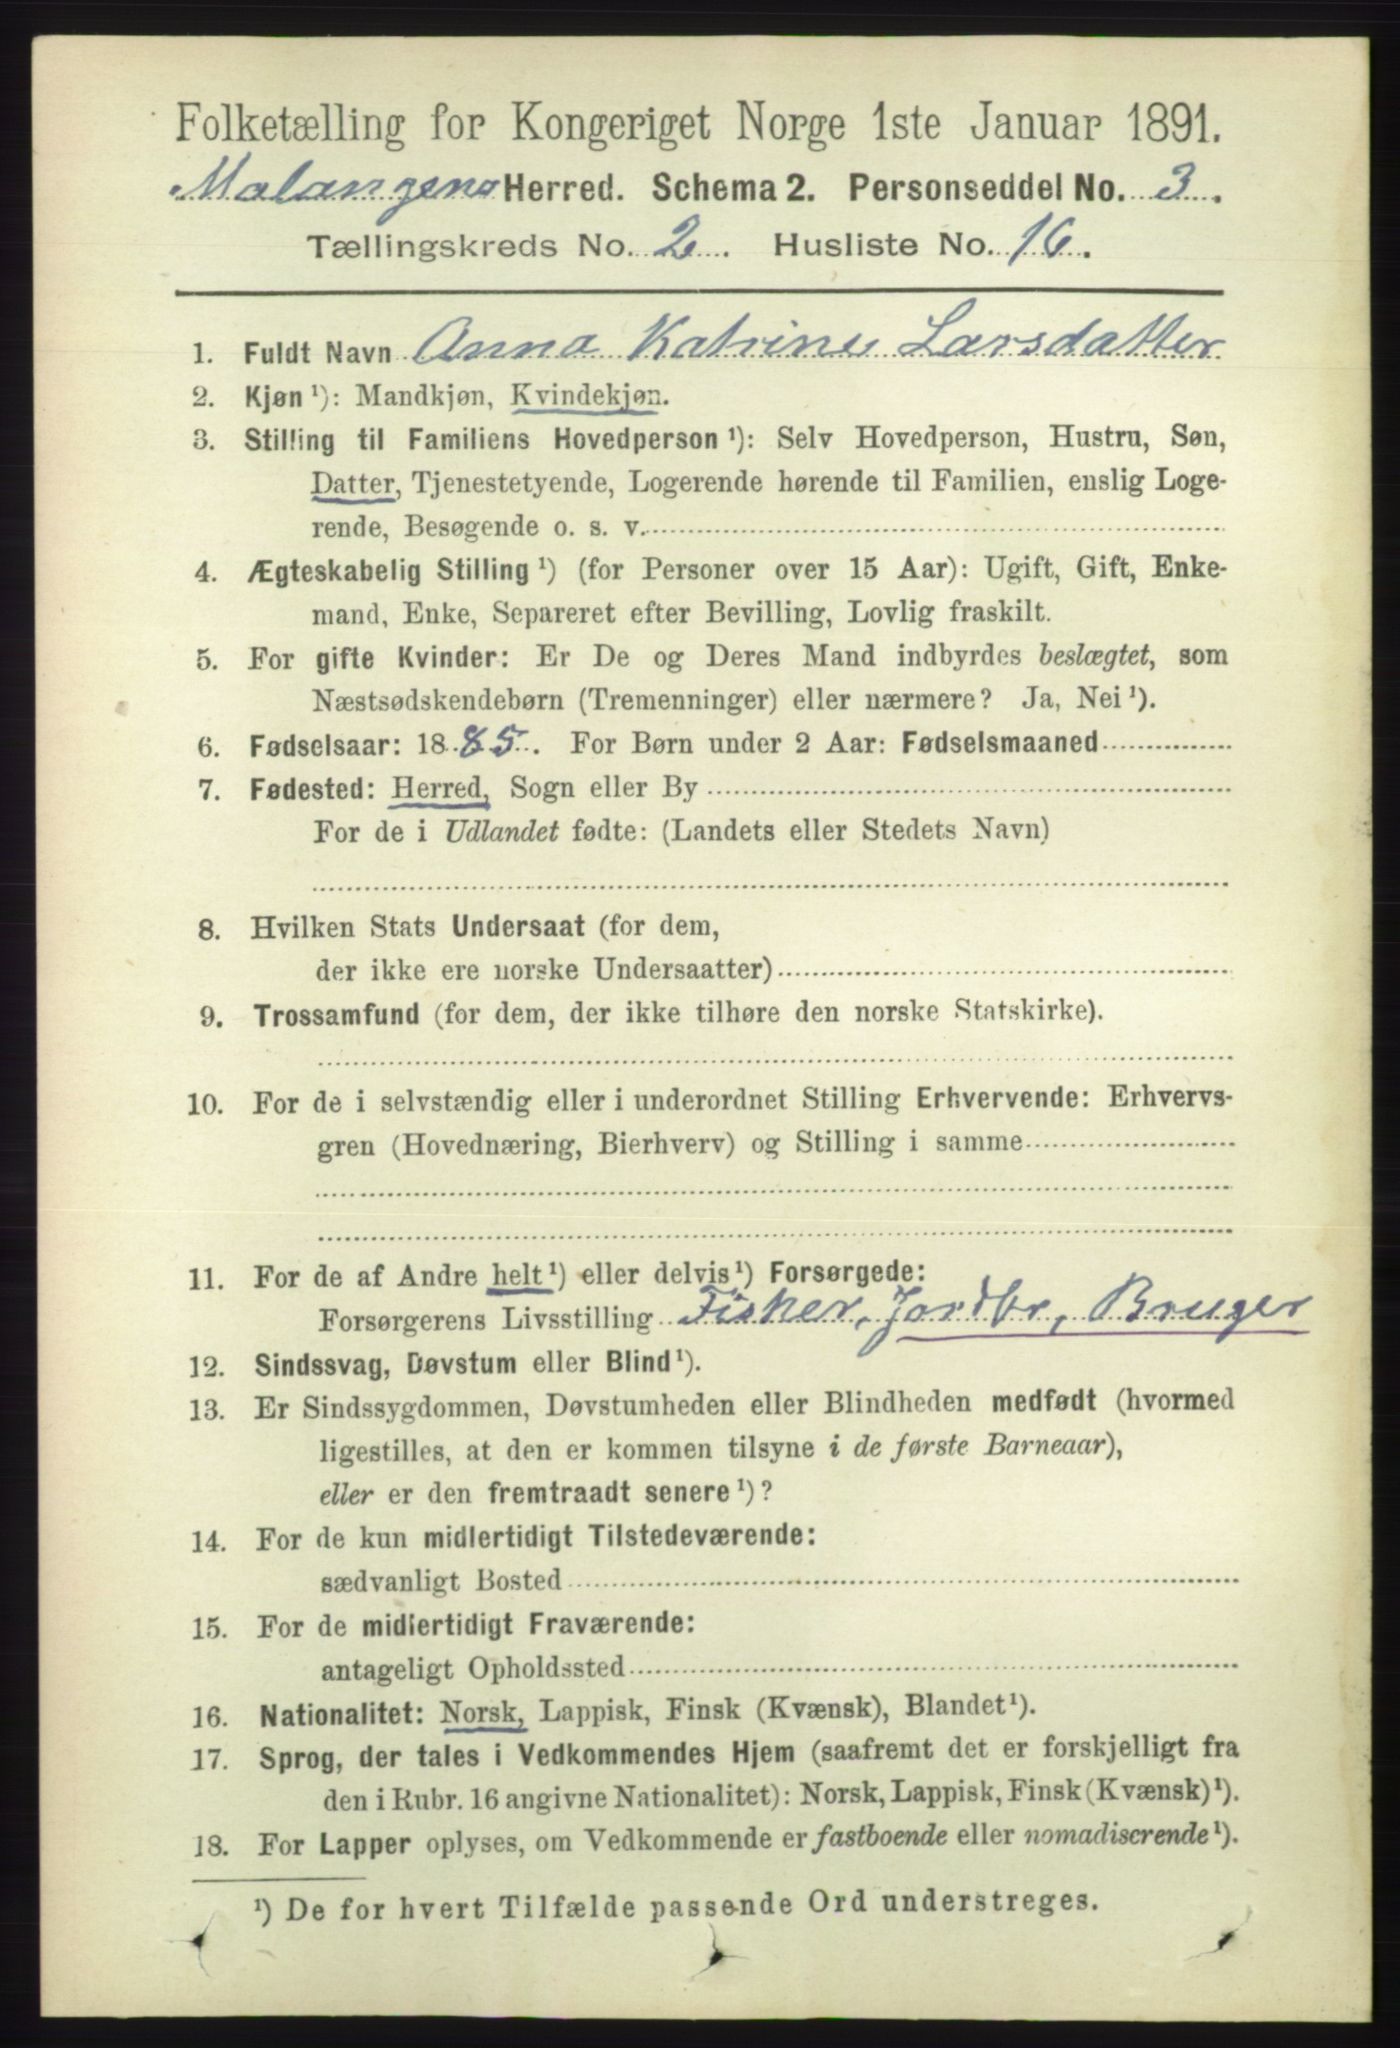 Folketælling for Kongeriget Norge 1ste Januar 1891.
Malangens Herred. Schema 2. Personseddel No. 3.
Tællingskreds No. 2. Husliste No. 16.
1. Fuldt Navn Anna Katrine Larsdatter
2. Kjøn ¹): Mandkjøn, Kvindekjøn.
3. Stilling til Familiens Hovedperson ¹): Selv Hovedperson, Hustru, Søn,
Datter, Tjenestetyende, Logerende hørende til Familien, enslig Loge-
rende, Besøgende o. s. v.
4. Ægteskabelig Stilling ¹) (for Personer over 15 Aar): Ugift, Gift, Enke-
mand, Enke, Separeret efter Bevilling, Lovlig fraskilt.
5. For gifte Kvinder: Er De og Deres Mand indbyrdes beslægtet, som
Næstsødskendebørn (Tremenninger) eller nærmere? Ja, Nei ¹).
6. Fødselsaar: 1885. For Børn under 2 Aar: Fødselsmaaned
7. Fødested: Herred, Sogn eller By
For de i Udlandet fødte: (Landets eller Stedets Navn)
8. Hvilken Stats Undersaat (for dem,
der ikke ere norske Undersaatter)
9. Trossamfund (for dem, der ikke tilhøre den norske Statskirke).
10. For de i selvstændig eller i underordnet Stilling Erhvervende: Erhvervs-
gren (Hovednæring, Bierhverv) og Stilling i samme
11. For de af Andre helt ¹) eller delvis ¹) Forsørgede:
Forsørgerens Livsstilling Fisker, Jordbr, Bruger
12. Sindssvag, Døvstum eller Blind ¹).
13. Er Sindssygdommen, Døvstumheden eller Blindheden medfødt (hvormed
ligestilles, at den er kommen tilsyne i de første Barneaar),
eller er den fremtraadt senere ¹)?
14. For de kun midlertidigt Tilstedeværende:
sædvanligt Bosted
15. For de midlertidigt Fraværende:
antageligt Opholdssted
16. Nationalitet: Norsk, Lappisk, Finsk (Kvænsk), Blandet ¹).
17. Sprog, der tales i Vedkommendes Hjem (saafremt det er forskjelligt fra
den i Rubr. 16 angivne Nationalitet): Norsk, Lappisk, Finsk (Kvænsk) ¹).
18. For Lapper oplyses, om Vedkommende er fastboende eller nomadiserende ¹).
¹) De for hvert Tilfælde passende Ord understreges.